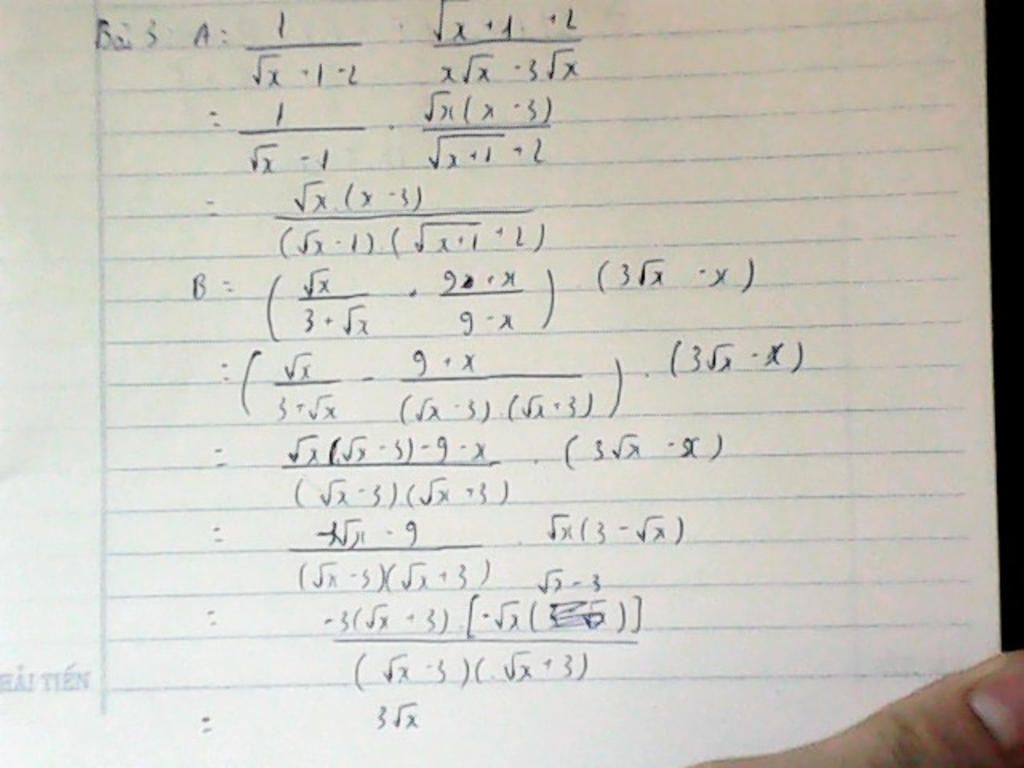 Bài 3 A = \frac{1}{\sqrt{x} - 1 - 2} : \frac{\sqrt{x + 1} + 2}{x\sqrt{x} - 3\sqrt{x}}
= \frac{1}{\sqrt{x} - 1} . \frac{\sqrt{x}(x - 3)}{\sqrt{x+1} + 2}
= \frac{\sqrt{x}.(x - 3)}{(\sqrt{x} - 1).(\sqrt{x+1} + 2)}
B = \left(\frac{\sqrt{x}}{3 + \sqrt{x}} + \frac{9 + x}{9 - x}\right) (3\sqrt{x} - x)
= \left(\frac{\sqrt{x}}{3 + \sqrt{x}} - \frac{9 + x}{(\sqrt{x} - 3).(\sqrt{x} + 3)}\right) . (3\sqrt{x} - x)
= \frac{\sqrt{x}(\sqrt{x} - 3) - 9 - x}{(\sqrt{x} - 3)(\sqrt{x} + 3)} . (3\sqrt{x} - x)
= \frac{-3\sqrt{x} - 9}{(\sqrt{x} - 3)(\sqrt{x} + 3)} . \sqrt{x}(3 - \sqrt{x})
= \frac{-3(\sqrt{x} + 3).[-\sqrt{x}(\sqrt{x} - 3)]}{(\sqrt{x} - 3)(\sqrt{x} + 3)}
HẢI TIẾN
= 3\sqrt{x}